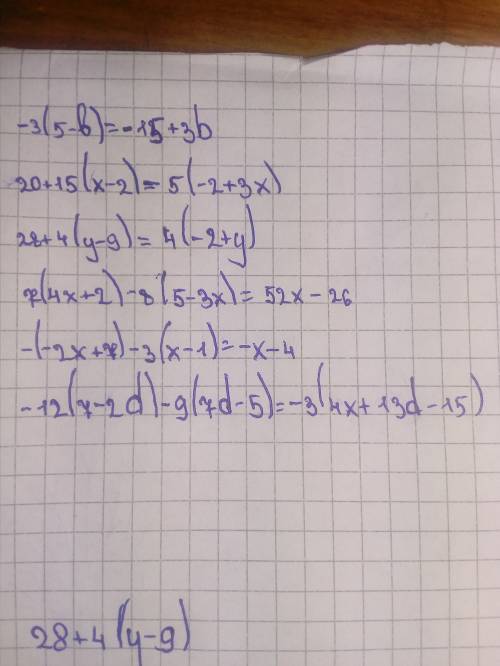 -3(5-b)=-15+3b
20+15(x-2)=5(-2+3x)
28+4(y-9)=4(-2+y)
7(4x+2)-8(5-3x)=52x-26
-(-2x+7)-3(x-1)=-x-4
-12(x-2d)-9(7d-5)=-3(4x+13d-15)
28+4(y-9)